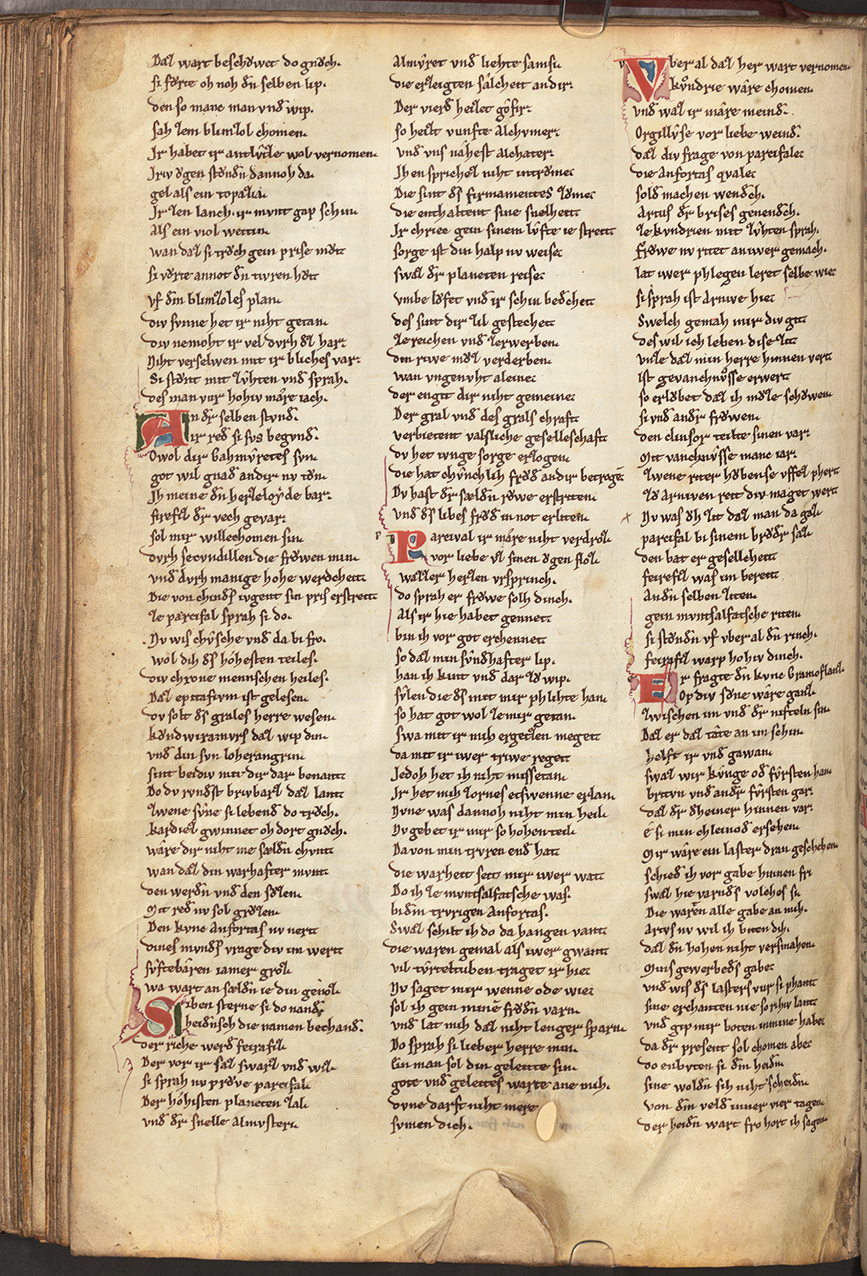 Daz wart beschowet do gnoch.
si forte oh noh dē selben lip.
den so manc man vnd wip.
sah zem blimizol chomen.
Ir habet ir antlvtze wol vernomen.
Ir ogen stēndē dannoh da.
gel als ein topazia.
Ir zen lanch. ir mvnt gap schin
Als ein viol weitin.
wan daz si troch gein prise mvͦt
si vͦrte an not dē tivren hvͦt
vf dē blimizoles plan.
div svnne het ir niht getan.
div ne moht ir vel dvrh dc har.
Niht verselwen mit ir bliches var.
Si stēnt mit zvhten vnd sprah.
des man vur hohiv mære iach.
An dr selben stvnd.
ir red si svs begvnd.
O wol dir Gahmvretes svn.
got wil gnad an dir nv tvͦn.
Ih meine dē herzeloyde bar.
fireſiz dr vech gevar.
sol mir willechomen sin.
dvrh secvndillen die frowen min.
vnd dvrh manige hohe werdcheit
Die von chindes ivgent sin pris erstreit
ze parcifal sprah si do.
Nv wis chvsche vnd da bi fro.
wol dih ds hohesten teiles.
div chrone mennschen heiles.
Daz epitafivm ist gelesen.
dv solt ds grales herre wesen.
kvndwiramvrs daz wip din.
vnd din svn loherangrin.
sint beidiv mit dir dar benant
Do dv rvmdst brivbarz daz lant
zwene svne si lebend do troch.
kardeiz gwinnet oh dort gnoch.
wære dir niht me sældē chvnt
wan daz din warhafter mvnt
den werdē vnd den svzen.
Mit red nv sol grvzen.
Den kvnc anfortas nv nert
dines mvnds vrage div im wert
svfteberen iamer groz.
wa wart an sældē ie din genoz
Siben sterne si do nand.
heidensch die namen bechand.
der riche werd feirafiz
Der vor ir saz swarz vnd wiz.
si sprah nv prvve parcifal.
Der hohisten planeten zal.
vnd dr snelle almvster.
Almvret vnd liehte samsi.
die erzeigten sælcheit an dir.
Der vierd heizet gofir.
so heizt vunfte alchymer.
vnd vns nahest alchater.
Ih en spriche z niht vz trovme.
Die sint ds firmamentes zovme.
die enthaltent sine snelheit
Ir chriec gein sinem lvfte ie streit
sorge ist din halp nv weise.
swaz dr planeten reise.
vmbe lovfet vnd ir schin bedechet
des sint dir zil gestechet
ze reichen vnd ze erwerben.
din rivwe mvz verderben.
wan vngenvht aleine.
der engit dir niht gemeine.
Der gral vnd des grals chraft
verbietent valsliche geselleschaft
dv het ivnge sorge erzogen.
die hat chvnchlih frovd an dir betrogē.
Dv hast dr sældē rvwe erstriten.
vnd ds libes frovd in not erliten.
Parcival ir mære niht verdroz.
vor liebe vz sinen ogen floz.
wazzer herzen vrsprinch.
do sprah er frowe solh dinch.
Als ir hie habet gennet
bin ih vor got erchennet
so daz min svndhafter lip.
han ih kint vnd dar zv wip.
svlen die ds mit mir phlihte han.
so hat got wol ze mir getan.
Swa mit ir mih ergetzen meget
da mit ir iwer triwe reget
Iedoh het ih niht missetan.
Ir het mih zornes etswenne erlan.
Done was dannoh niht min heil.
Nv gebet ir mir so hohen teil.
Da von min trvren end hat.
die warheit seit mir iwer wat
Do ih ze mvntsalfatsche was.
bi dē trvrigen Anfortas.
Swaz schilt ih do da hangen vant.
die waren gemal als iwer gwant.
vil tvrteltuben traget ir hie.
Nv saget mir wenne ode wie.
sol ih gein minē frovdē varn.
vnd lat mih daz niht lenger sparn.
Do sprah si lieber herre min.
Ein man sol din geleitte sin.
gote vnd geleites warte ane mih.
dvne darft niht mere
svmen dich.
Vber al daz her wart vernomen
kvndrie wære chomen.
vnd waz ir mære meind.
Orgillvse vor liebe weind.
daz div frage von parcifale.
die anfortas qvale.
sold machen wendeh.
Artus dr brises genendeh.
ze kvndrien mit zvhten sprah.
Frowe nv ritet an iwer gemach.
lat iwer phlegen leret selbe wie.
si sprah ist arnive hie.
Swelch gemah mir div git
des wil ih leben dise zit
vnze daz min herre hinnen vert
Ist ir gevanchnvsse erwert
so erlobet daz ih mvze schowen
si vnd ander frowen.
den clinsor teilte sinen var.
Mit vanchnvsse manc iar.
zwene riter hvben se vffez phert
zv Arniven reit div maget wert
Nv was oh zit daz man da gaz
parcifal bi sinem brvder saz.
den bat er gesellecheit
feirefiz was im bereit.
an dē selben ziten.
gein mvntsalfatsche riten.
si stvndē vf vber al dē rinch.
feirafiz warp hohiv dinch.
Er fragte dē kvnc Gramoflanz
op div svne wære ganz
zwischen im vnd dr nifteln sin
Daz er daz tæte an im schin.
helft ir vnd gawan.
swaz wir kvnge od fvrsten han
barvn vnd ander fvrsten gar.
daz dr dheiner hinnen var.
e si min chleinod ersehen.
Mir wære ein laster dran geschehen
schied ih vor gabe hinnen fri
swaz hie varnds volches si.
Die waren alle gabe an mih.
Artvs nv wil ih biten dih.
daz dē hohen niht versmahen.
Mins gewerbeds gabe
vnd wis ds lasters vur si phant
sine erchanten nie so rihiv lant
vnd gip mir boten in mine habe
da dr present sol chomen abe
do enbvten si dē heidē
sine woldē sih niht scheidē
von dē veld inner vier tagen.
der heidē wart fro hort ih sagen